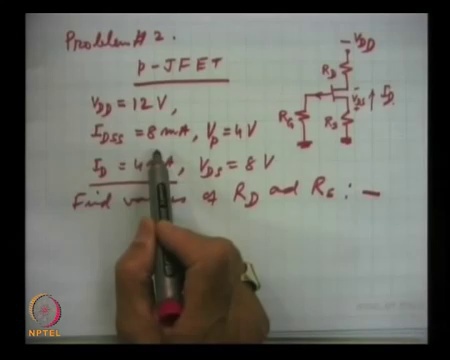 Problem # 2.
p-JFET
V_DD = 12 V,
I_DSS = 8 mA, V_p = 4 V
I_D = 4 mA, V_DS = 8 V
Find values of R_D ad R_S : -
-V_DD
R_D
V_DS
I_D
R_G
R_S
NPTEL